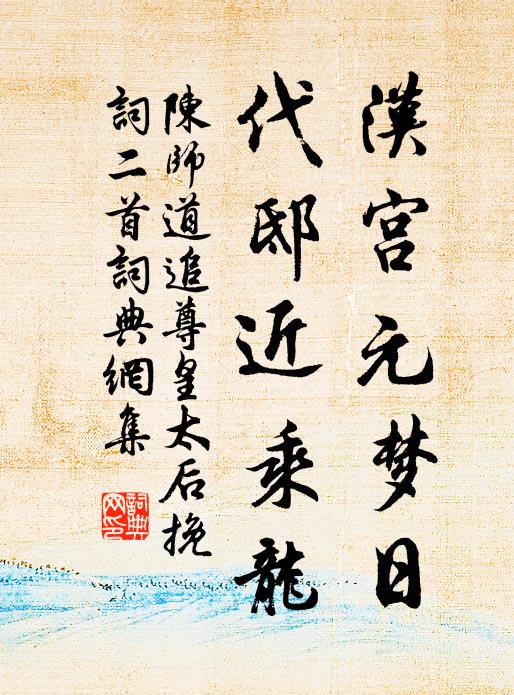 漢宫元梦日
代邸近乘龍
陳師道追尊皇太后挽
詞二首詞典網集
詞典
网印